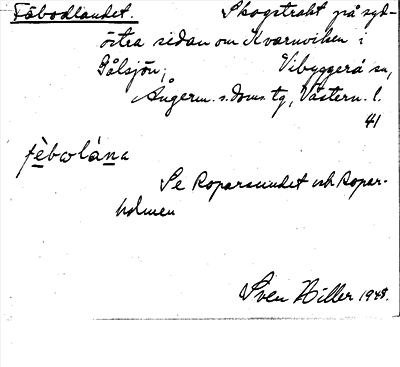 Fäbodlandet Skogstrakt på syd-
östra sidan om Kvarnviken i
Gålsjön; Vibyggerå sn,
Ångerm. s. doms. tg, Västern. l.
41
fèbωlána
Se Roparsundet och Ropar-
holmen
Sven Hiller 1948.